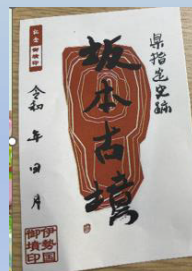 県指定史跡
坂本古墳
令和 年 四月
伊勢国
御墳印